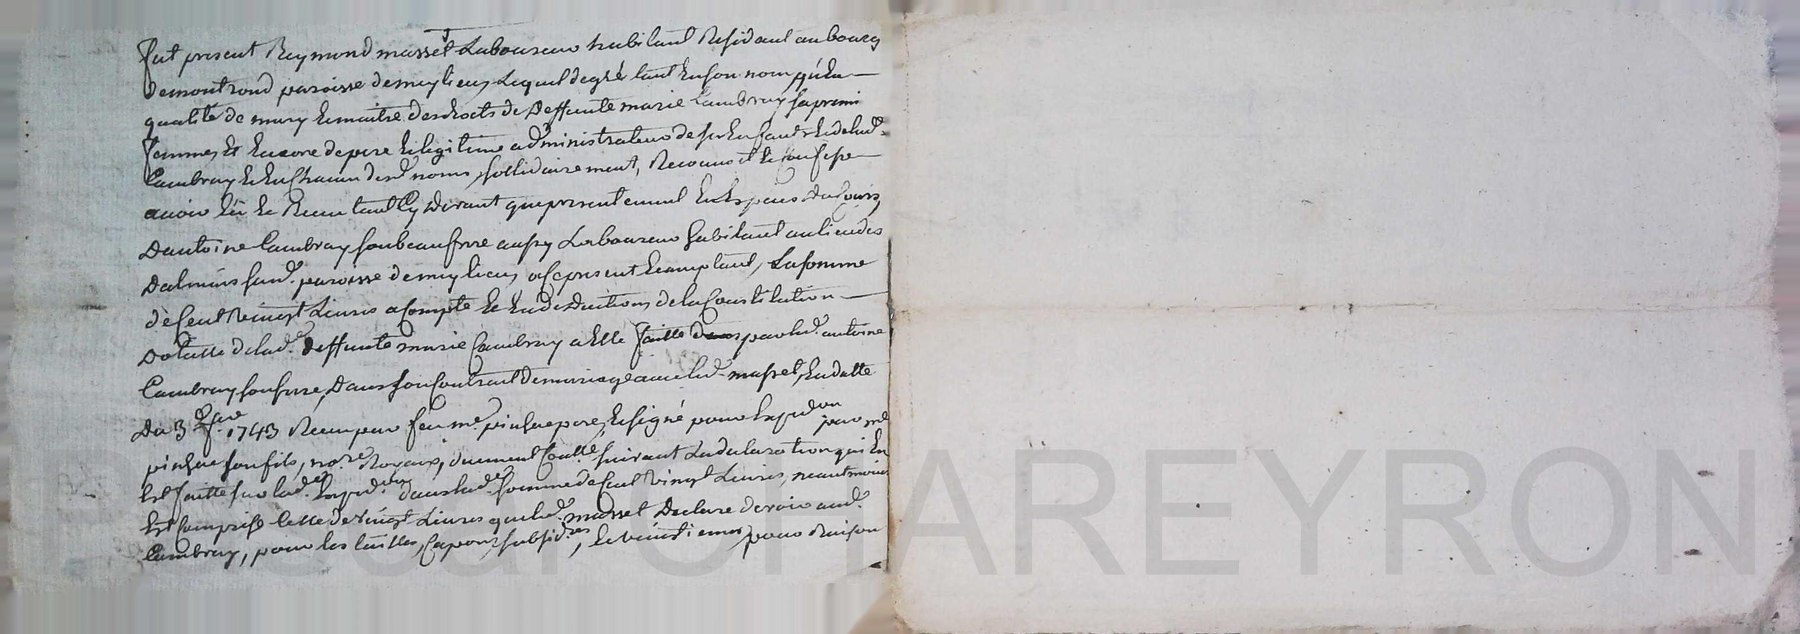 fut present Reymond masset Laboureur habitant Residant au bourg
de montrond paroisse de meylieu Lequel de gré tant En son nom qu'En
qualité de mary Et maitre des droits de Deffunte marie Cambray sa premi
femme, Et Encore de pere Et legitime administrateur de ses Enfants Et de lad.
Cambray Et En Chacun desd. noms sollidairement, Reconnoit Et Confesse
auoir Eü Et Recu tant Cy deuant que presentement En Especes du Cours,
D'antoine Cambray son beaufrere aussy Laboureur habitant au lieu des
Dalmais susd. paroisse de meylieu, a Ce present Et acceptant, La somme
de Cent Vingt Liures a Compte Et En deduction de la Constitution
Dotalle de lad. deffunte marie Cambray a Elle faitte par led. antoine
Cambray son frere, Dans son Contract de mariage auec led. masset, En datte
Du 3 1743 Recu par feu me. pinhere pere, Et signé pour Expedon par me
pinhere son fils, nore. Royaux, duement Conllé. suiuant La declaration qui En
Est faitte sur lad. Expedon. dans lad. somme de Cent Vingt Liures, neantmoins
Est Comprise Celle de Vingt Liures que led. masset Declare deuoir aud.
Cambray, pour les tailles, Capon, subsides, Et Vingtiemes, pour Raison
CHAREYRON